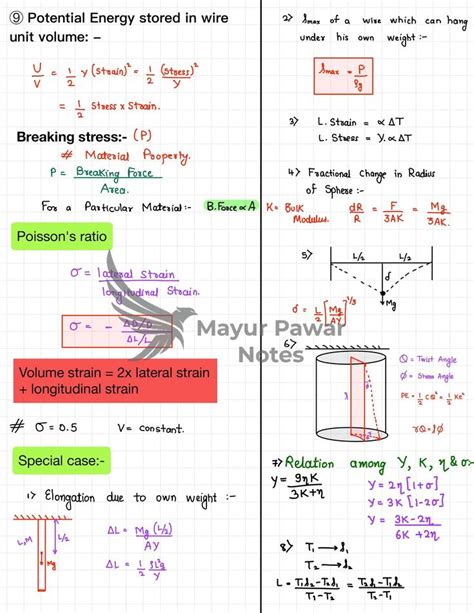 ⑨ Potential Energy stored in wire
unit volume: –
U/V = 1/2 Y (strain)² = 1/2 (stress)²/Y
= 1/2 stress x strain.
Breaking stress:- (P)
# Material Property.
P = Breaking Force / Area.
For a Particular Material:- B.Force ∝ A
Poisson's ratio
σ = lateral strain / longitudinal strain.
σ = - ΔD/D / ΔL/L
Volume strain = 2x lateral strain
+ longitudinal strain
# σ = 0.5 V = constant.
Special case:-
1) Elongation due to own weight :-
L, M
L/2
Mg
ΔL = Mg (L/2) / AY
ΔL = 1/2 ρL²g / Y
2) lmax of a wire which can hang
under his own weight :-
lmax = P/ρg
3) L. Strain = ∝ ΔT
L. Stress = Y.∝ ΔT
4) Fractional Change in Radius
of Sphere :-
K= Bulk
Modulus.
dR/R = F/3AK = Mg/3AK.
5)
L/2 L/2
δ
Mg
σ = 1/2 [Mg/AY]^1/3
6)
Q = Twist Angle
Ø = Shear Angle
PE = 1/2 CQ² = 1/2 KQ²
rQ = lØ
7) Relation among Y, K, η & σ:-
Y = 9ηK / 3K+η
Y = 2η [1+σ]
Y = 3K [1-2σ]
Y = 3K-2η / 6K+2η
8) T₁ → l₁
T₂ → l₂
L = T₁l₂-T₂l₁ / T₁-T₂ = T₂l₁-T₁l₂ / T₂-T₁
Mayur Pawar
Notes